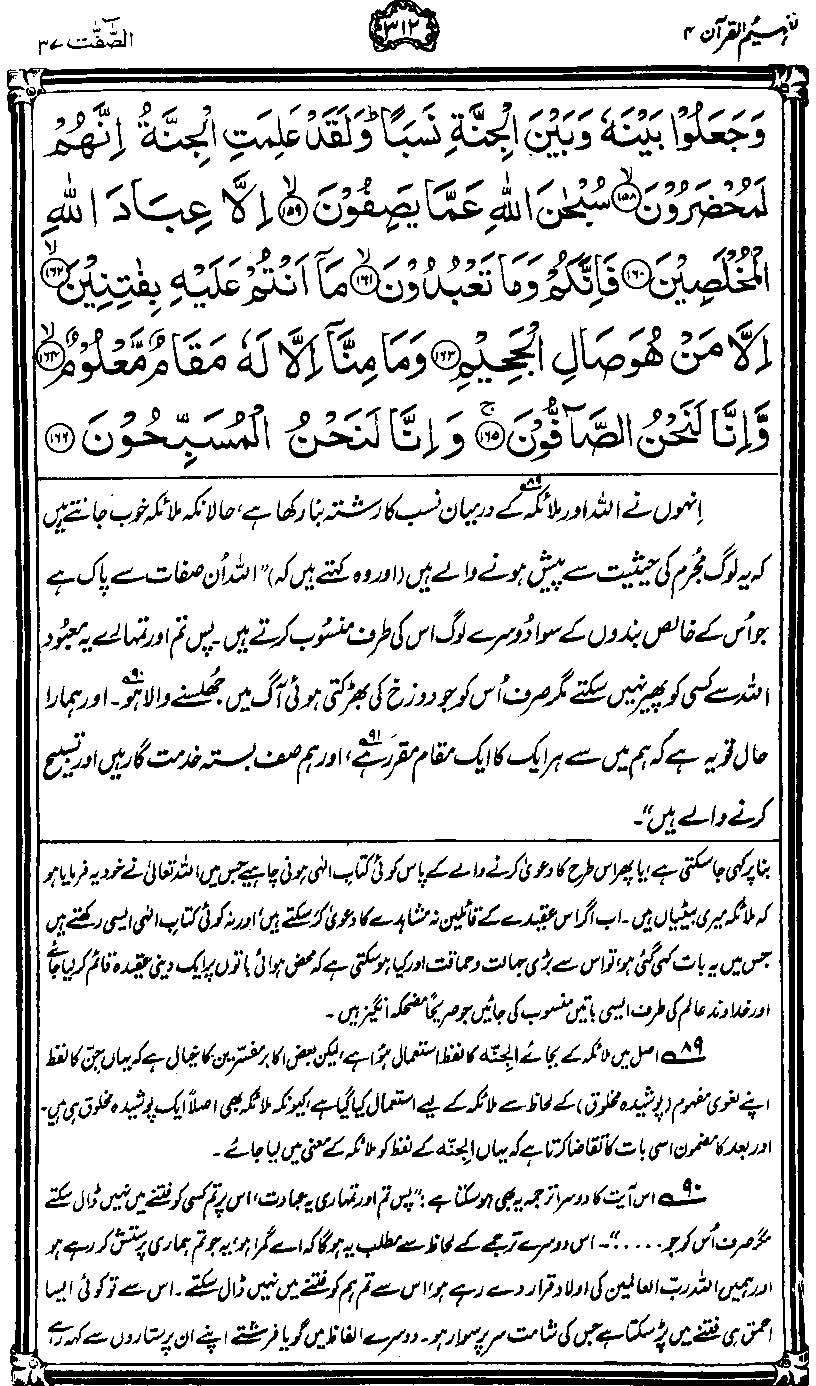 تفہیم القرآن ۴
۳۱۲
الصّٰفّٰت ۳۷
وَجَعَلُوْا بَيْنَهٗ وَبَيْنَ الْجِنَّةِ نَسَبًا ؕ وَلَقَدْ عَلِمَتِ الْجِنَّةُ اِنَّهُمْ
لَمُحْضَرُوْنَ ۙ﴿۱۵۸﴾ سُبْحٰنَ اللّٰهِ عَمَّا يَصِفُوْنَ ۙ﴿۱۵۹﴾ اِلَّا عِبَادَ اللّٰهِ
الْمُخْلَصِيْنَ ﴿۱۶۰﴾ فَاِنَّكُمْ وَمَا تَعْبُدُوْنَ ۙ﴿۱۶۱﴾ مَاۤ اَنْتُمْ عَلَيْهِ بِفٰتِنِيْنَ ۙ﴿۱۶۲﴾
اِلَّا مَنْ هُوَ صَالِ الْجَحِيْمِ ﴿۱۶۳﴾ وَمَا مِنَّاۤ اِلَّا لَهٗ مَقَامٌ مَّعْلُوْمٌ ۙ﴿۱۶۴﴾
وَّاِنَّا لَنَحْنُ الصَّآفُّوْنَ ۚ﴿۱۶۵﴾ وَاِنَّا لَنَحْنُ الْمُسَبِّحُوْنَ ﴿۱۶۶﴾
اِنہوں نے اللہ اور ملائکہ۸۹ کے درمیان نسب کا رشتہ بنا رکھا ہے، حالانکہ ملائکہ خوب جانتے ہیں
کہ یہ لوگ مُجرم کی حیثیت سے پیش ہونے والے ہیں (اور وہ کہتے ہیں کہ) ”اللہ اُن صفات سے پاک ہے
جو اُس کے خالص بندوں کے سوا دُوسرے لوگ اس کی طرف منسُوب کرتے ہیں۔ پس تم اور تمہارے یہ معبُود
اللہ سے کسی کو پھیر نہیں سکتے مگر صرف اُس کو جو دوزخ کی بھڑکتی ہوئی آگ میں جُھلسنے والا ہو۹۰۔ اور ہمارا
حال تو یہ ہے کہ ہم میں سے ہر ایک کا ایک مقام مقرر ہے۹۱، اور ہم صف بستہ خدمت گار ہیں اور تسبیح
کرنے والے ہیں“۔
بنا پر کہی جا سکتی ہے، یا پھر اس طرح کا دعویٰ کرنے والے کے پاس کوئی کتاب الٰہی ہونی چاہیے جس میں اللہ تعالیٰ نے خود یہ فرمایا ہو
کہ ملائکہ میری بیٹیاں ہیں۔ اب اگر اس عقیدے کے قائلین نہ مشاہدے کا دعویٰ کر سکتے ہیں، اور نہ کوئی کتاب الٰہی ایسی رکھتے ہیں
جس میں یہ بات کہی گئی ہو، تو اس سے بڑی جہالت و حماقت اور کیا ہو سکتی ہے کہ محض ہوائی باتوں پر ایک دینی عقیدہ قائم کر لیا جائے
اور خداوند عالم کی طرف ایسی باتیں منسوب کی جائیں جو صریحاً مضحکہ انگیز ہیں۔
۸۹ اصل میں ملائکہ کے بجائے الجِنّہ کا لفظ استعمال ہُوا ہے، لیکن بعض اکابر مفسّرین کا خیال ہے کہ یہاں جِنّ کا لفظ
اپنے لغوی مفہوم (پوشیدہ مخلوق) کے لحاظ سے ملائکہ کے لیے استعمال کیا گیا ہے، کیونکہ ملائکہ بھی اصلاً ایک پوشیدہ مخلوق ہی ہیں۔
اور بعد کا مضمون اسی بات کا تقاضا کرتا ہے کہ یہاں الجِنّہ کے لفظ کو ملائکہ کے معنی میں لیا جائے۔
۹۰ اس آیت کا دوسرا ترجمہ یہ بھی ہو سکتا ہے: ”پس تم اور تمہاری یہ عبادت، اس پر تم کسی کو فتنے میں نہیں ڈال سکتے
مگر صرف اُس کو جو .....“۔ اس دوسرے ترجمے کے لحاظ سے مطلب یہ ہو گا کہ اے گمراہو، یہ جو تم ہماری پرستش کر رہے ہو
اور ہمیں اللہ ربّ العالمین کی اولاد قرار دے رہے ہو، اس سے تم ہم کو فتنے میں نہیں ڈال سکتے۔ اس سے تو کوئی ایسا
احمق ہی فتنے میں پڑ سکتا ہے جس کی شامت سر پر سوار ہو۔ دوسرے الفاظ میں گویا فرشتے اپنے ان پرستاروں سے کہہ رہے